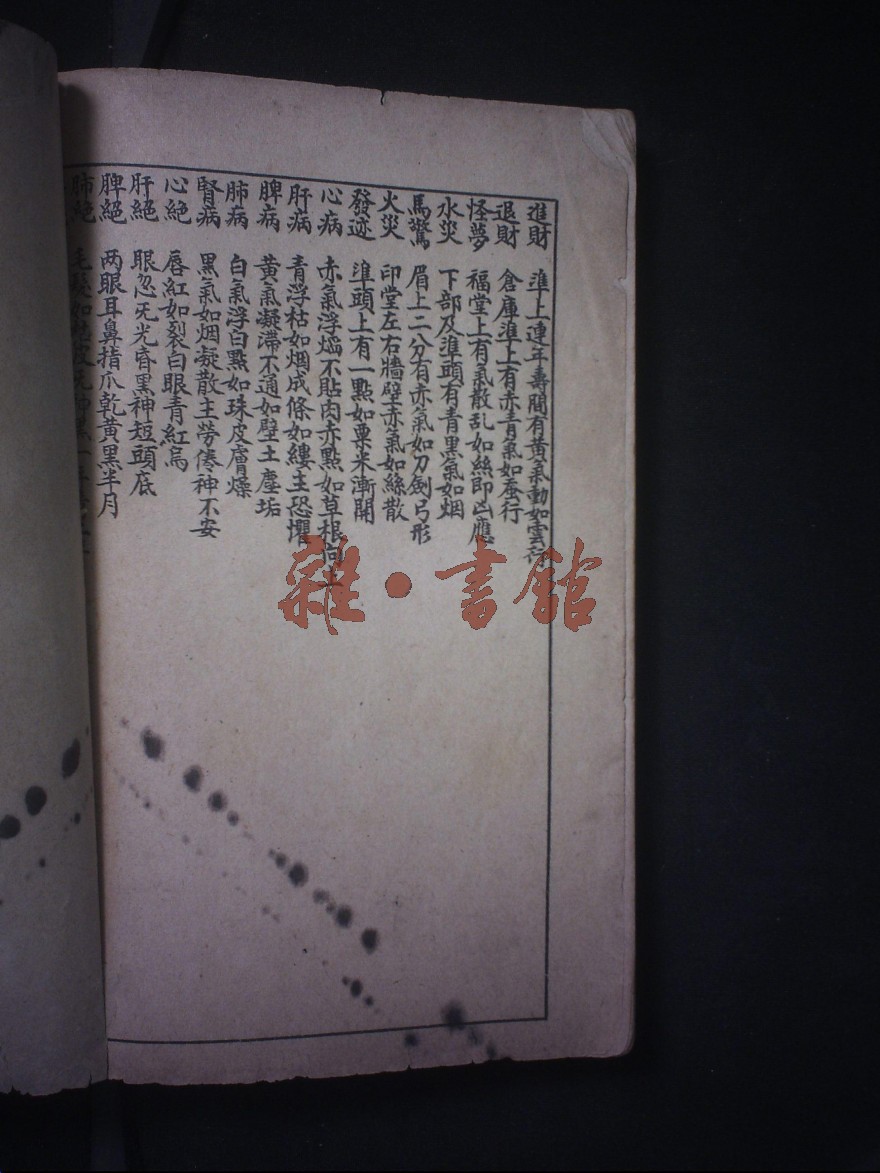 進財　準上連年壽間有黃氣動如雲行
退財　倉庫準上有赤青氣如蚕行
怪夢　福堂上有氣散乱如絲即凶應
水災　下部及準頭有青黑氣如烟
馬驚　眉上二分有赤氣如刀劍弓形
火災　印堂左右牆壁赤氣如絲散
發迹　準頭上有一點如粟米漸開
心病　赤氣浮熖不貼肉赤點如草根向上
肝病　青浮枯如烟成條如縷主恐懼
脾病　黃氣凝滯不通如壁土塵垢
肺病　白氣浮白點如珠皮膚燥
腎病　黑氣如烟凝散主勞倦神不安
心絕　唇紅如裂白眼青紅烏
肝絕　眼忽旡光昏黑神短頭底
脾絕　两眼耳鼻指爪乾黃黑半月
肺絕　毛髮如皮旡
雜·書館